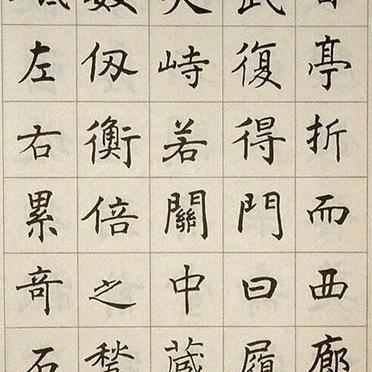 亭折而西廊
武復得門曰
峙若關中藏
數仭衡倍之甃
左右累奇石